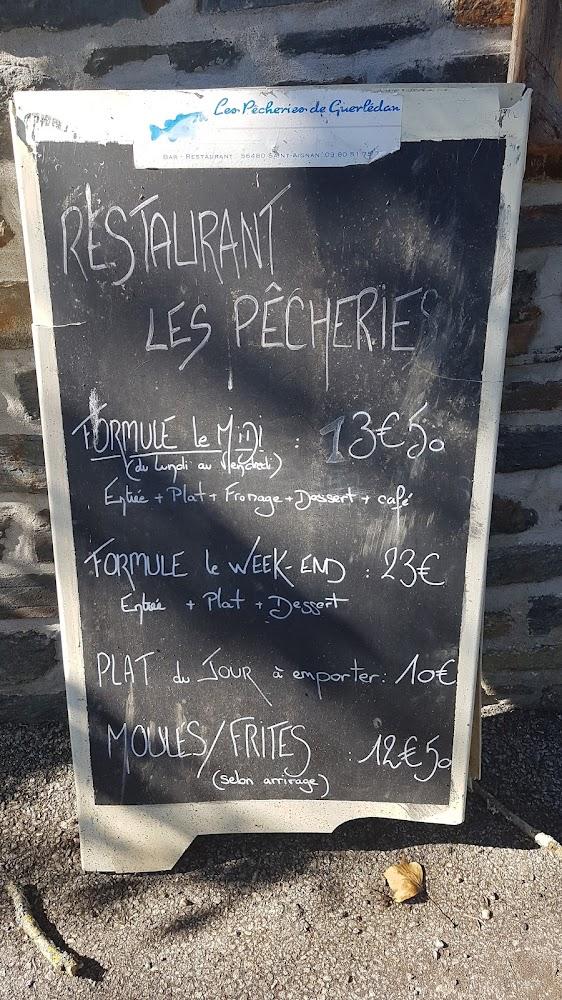 Les Pêcheries de Guerlédan
BAR - RESTAURANT 56480 SAINT-AIGNAN
RESTAURANT
LES PÊCHERIES
FORMULE le MiDi : 13€50
(du lundi au Vendredi)
Entrée + Plat + Fromage + Dessert + café
FORMULE le WEEK-END : 23€
Entrée + Plat + Dessert
PLAT du JOUR à emporter : 10€
MOULES/FRITES : 12€50
(selon arrivage)